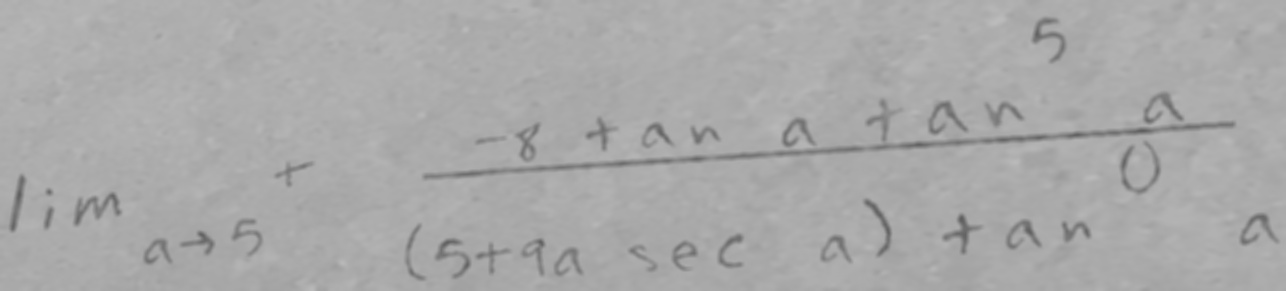 \lim_{a \to 5^+} \frac{-8 \tan a \tan^5 a}{(5+9a \sec a) \tan^0 a}